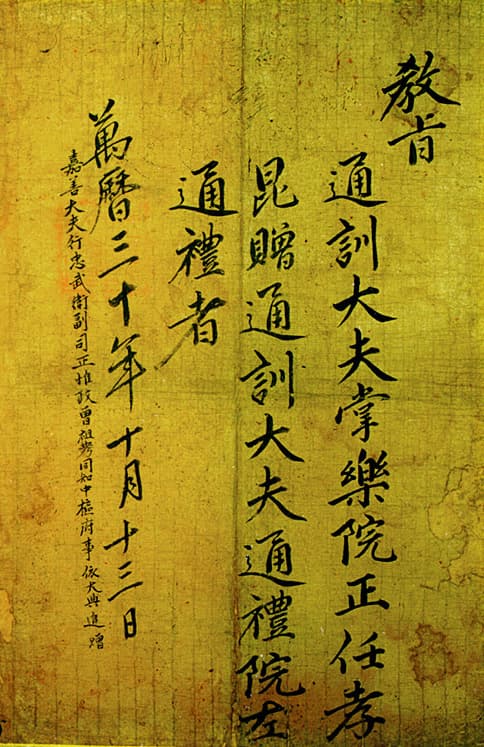 教旨
通訓大夫掌樂院正任孝
昆贈通訓大夫通禮院左
通禮者
萬曆三十年十月十三日
嘉善大夫行忠武衛副司正惟政曾祖考同知中樞府事依大典追贈